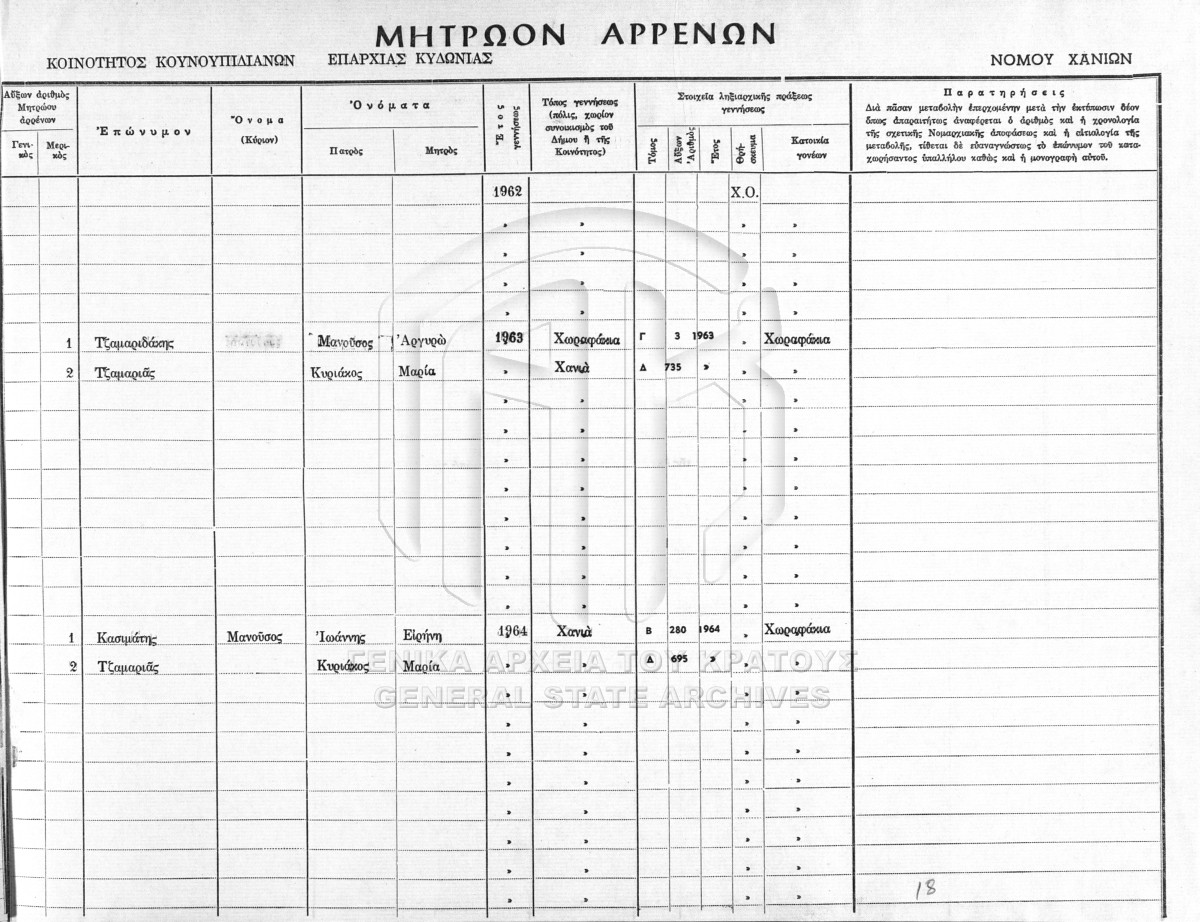 ΜΗΤΡΩΟΝ ΑΡΡΕΝΩΝ
ΚΟΙΝΟΤΗΤΟΣ ΚΟΥΝΟΥΠΙΔΙΑΝΩΝ ΕΠΑΡΧΙΑΣ ΚΥΔΩΝΙΑΣ ΝΟΜΟΥ ΧΑΝΙΩΝ
Αὔξων ἀριθμὸς Μητρώου ἀρρένων
Γενικὸς Μερικὸς
Ἐπώνυμον
Ὄνομα (Κύριον)
Ὀνόματα
Πατρὸς Μητρὸς
Ἔτος γεννήσεως
Τόπος γεννήσεως (πόλις, χωρίον συνοικισμὸς τοῦ Δήμου ἢ τῆς Κοινότητος)
Στοιχεῖα ληξιαρχικῆς πράξεως γεννήσεως
Τόμος Αὔξων Ἀριθμὸς Ἔτος Θρήσκευμα Κατοικία γονέων
Παρατηρήσεις
Διὰ πᾶσαν μεταβολὴν ἐπερχομένην μετὰ τὴν ἐκτύπωσιν δέον
ὅπως ἀπαραιτήτως ἀναφέρεται ὁ ἀριθμὸς καὶ ἡ χρονολογία
τῆς σχετικῆς Νομαρχιακῆς ἀποφάσεως καὶ ἡ αἰτιολογία τῆς
μεταβολῆς, τίθεται δὲ εὐαναγνώστως τὸ ἐπώνυμον τοῦ κατα-
χωρήσαντος ὑπαλλήλου καθὼς καὶ ἡ μονογραφὴ αὐτοῦ.
1962 Χ.Ο.
» » » »
» » » »
» » » »
1 Τζαμαριδάκης Μανοῦσος Ἀργυρὼ 1963 Χωραφάκια Γ 3 1963 » Χωραφάκια
2 Τζαμαριᾶς Κυριάκος Μαρία » Χανιὰ Δ 735 » » »
» » » »
» » » »
» » » »
» » » »
» » » »
» » » »
» » » »
» » » »
1 Κασιμάτης Μανοῦσος Ἰωάννης Εἰρήνη 1964 Χανιὰ Β 280 1964 » Χωραφάκια
2 Τζαμαριᾶς Κυριάκος Μαρία » » Δ 695 » » »
» » » »
» » » »
» » » »
» » » »
» » » »
» » » »
» » » »
» » » »
ΓΕΝΙΚΑ ΑΡΧΕΙΑ ΤΟΥ ΚΡΑΤΟΥΣ
GENERAL STATE ARCHIVES
18